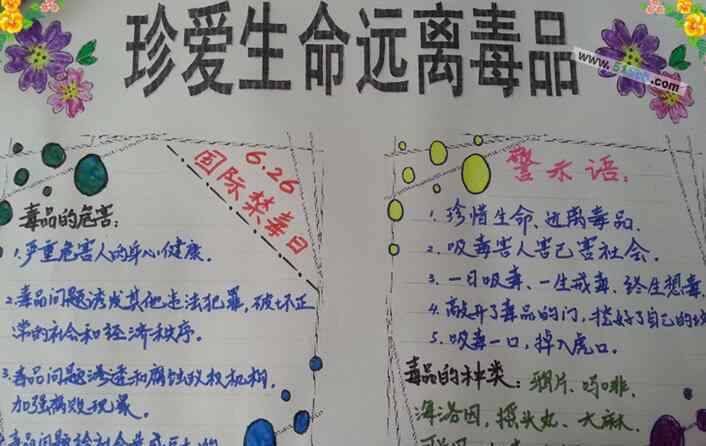 珍爱生命远离毒品
6.26
国际禁毒日
毒品的危害:
1.严重危害人的身心健康.
2.毒品问题诱发其他违法犯罪,破坏正
常的社会和经济秩序.
3.毒品问题渗透和腐蚀政权机构,
加强腐败现象.
毒品问题给社会造成巨大的
警示语:
1.珍惜生命、远离毒品.
2.吸毒害人害己害社会.
3.一日吸毒、一生戒毒、终生想毒.
4.敞开了毒品的门,挖好了自己的
5.吸毒一口,掉入虎口.
毒品的种类:鸦片、吗啡、
海洛因、摇头丸、大麻、